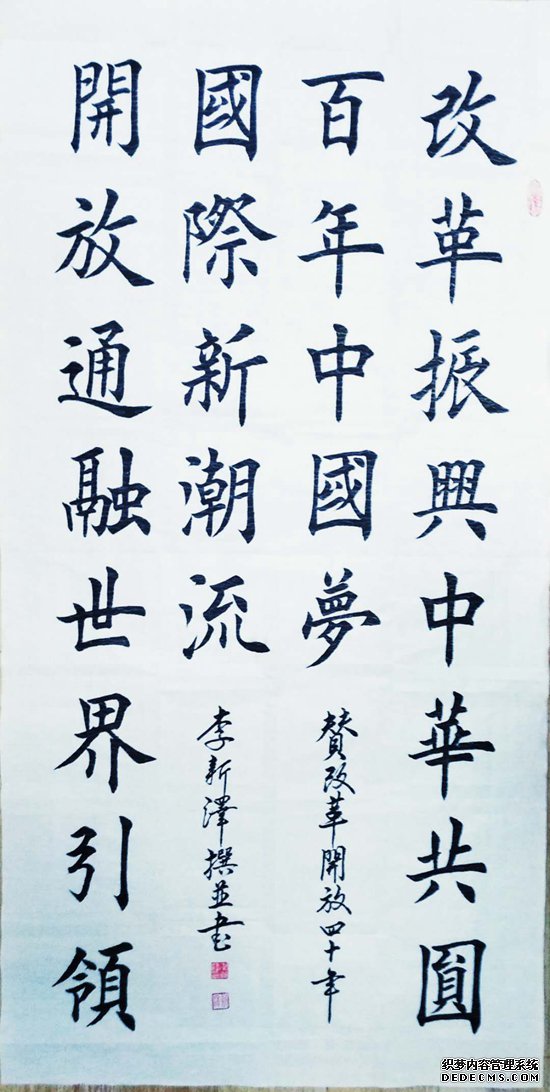 改革振興中華共圓
百年中國夢
贊改革開放四十年
開放通融世界引領
國際新潮流
李新澤撰並書
织梦内容管理系统
DEDECMS.COM